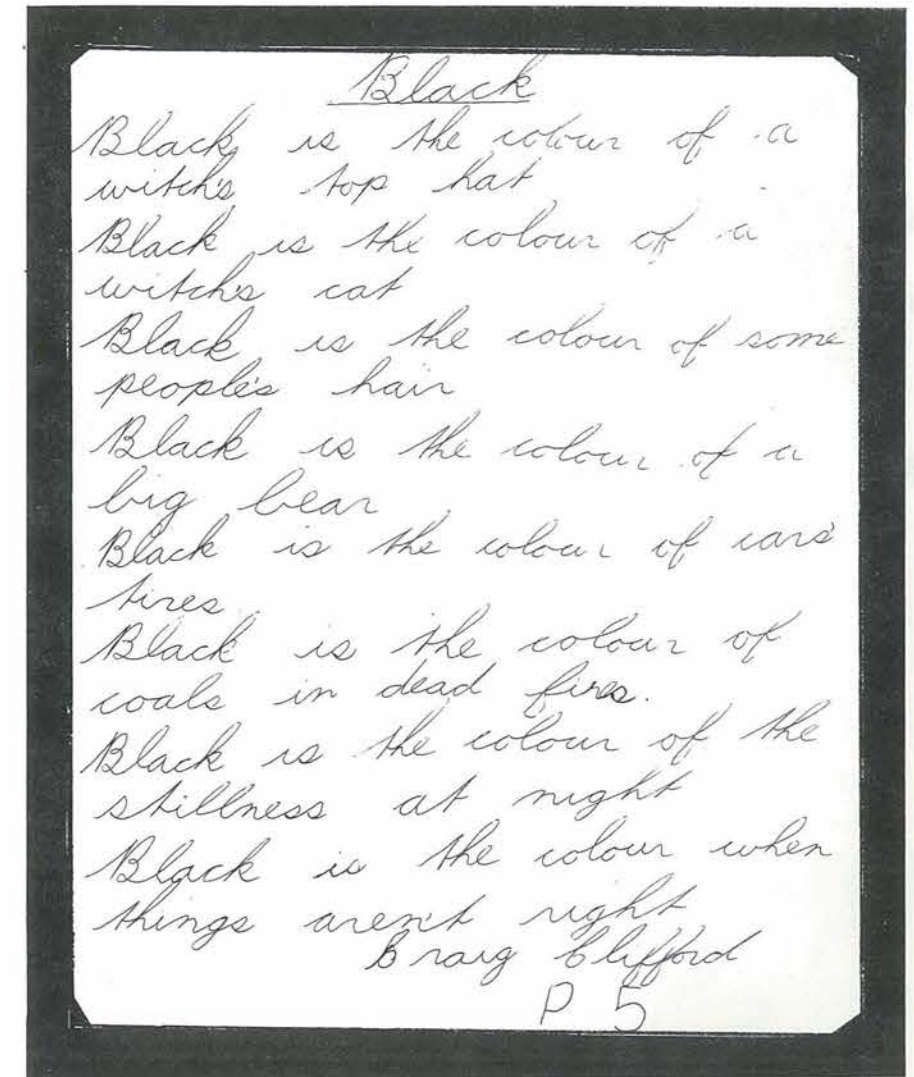 Black
Black is the colour of a
witch's top hat
Black is the colour of a
witch's cat
Black is the colour of some
people's hair
Black is the colour of a
big bear
Black is the colour of cars'
tires
Black is the colour of
coals in dead fires.
Black is the colour of the
stillness at night
Black is the colour when
things aren't right
Craig Clifford
P 5